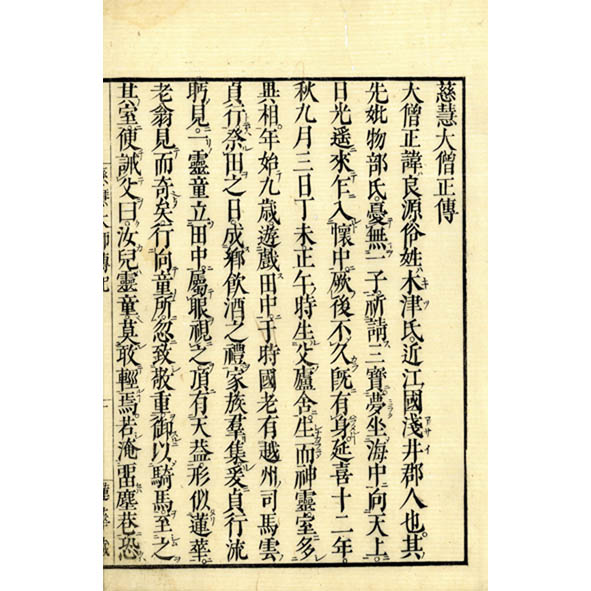 慈慧大僧正傳
大僧正諱良源俗姓木津氏。近江國淺井郡人也。其
先妣物部氏。憂無一子祈請三寶夢坐海中向天上。
日光遥來乍入懷中。厥後不久旣有身。延喜十二年。
秋九月三日丁未正午時生父廬舍。生而神靈。室多
異相。年始九歳。遊戲田中。于時國老有越州司馬雲
貞行。祭田之日。成鄕飮酒之禮。家族羣集。爰貞行流
眄見。一靈童立田中。屬眼視之頂有天蓋形似蓮華。
老翁見而奇矣。行向童所。忽致敬重御以騎馬。至之
其室便誡父曰。汝兒靈童莫敢輕焉。若淹畱塵巷恐